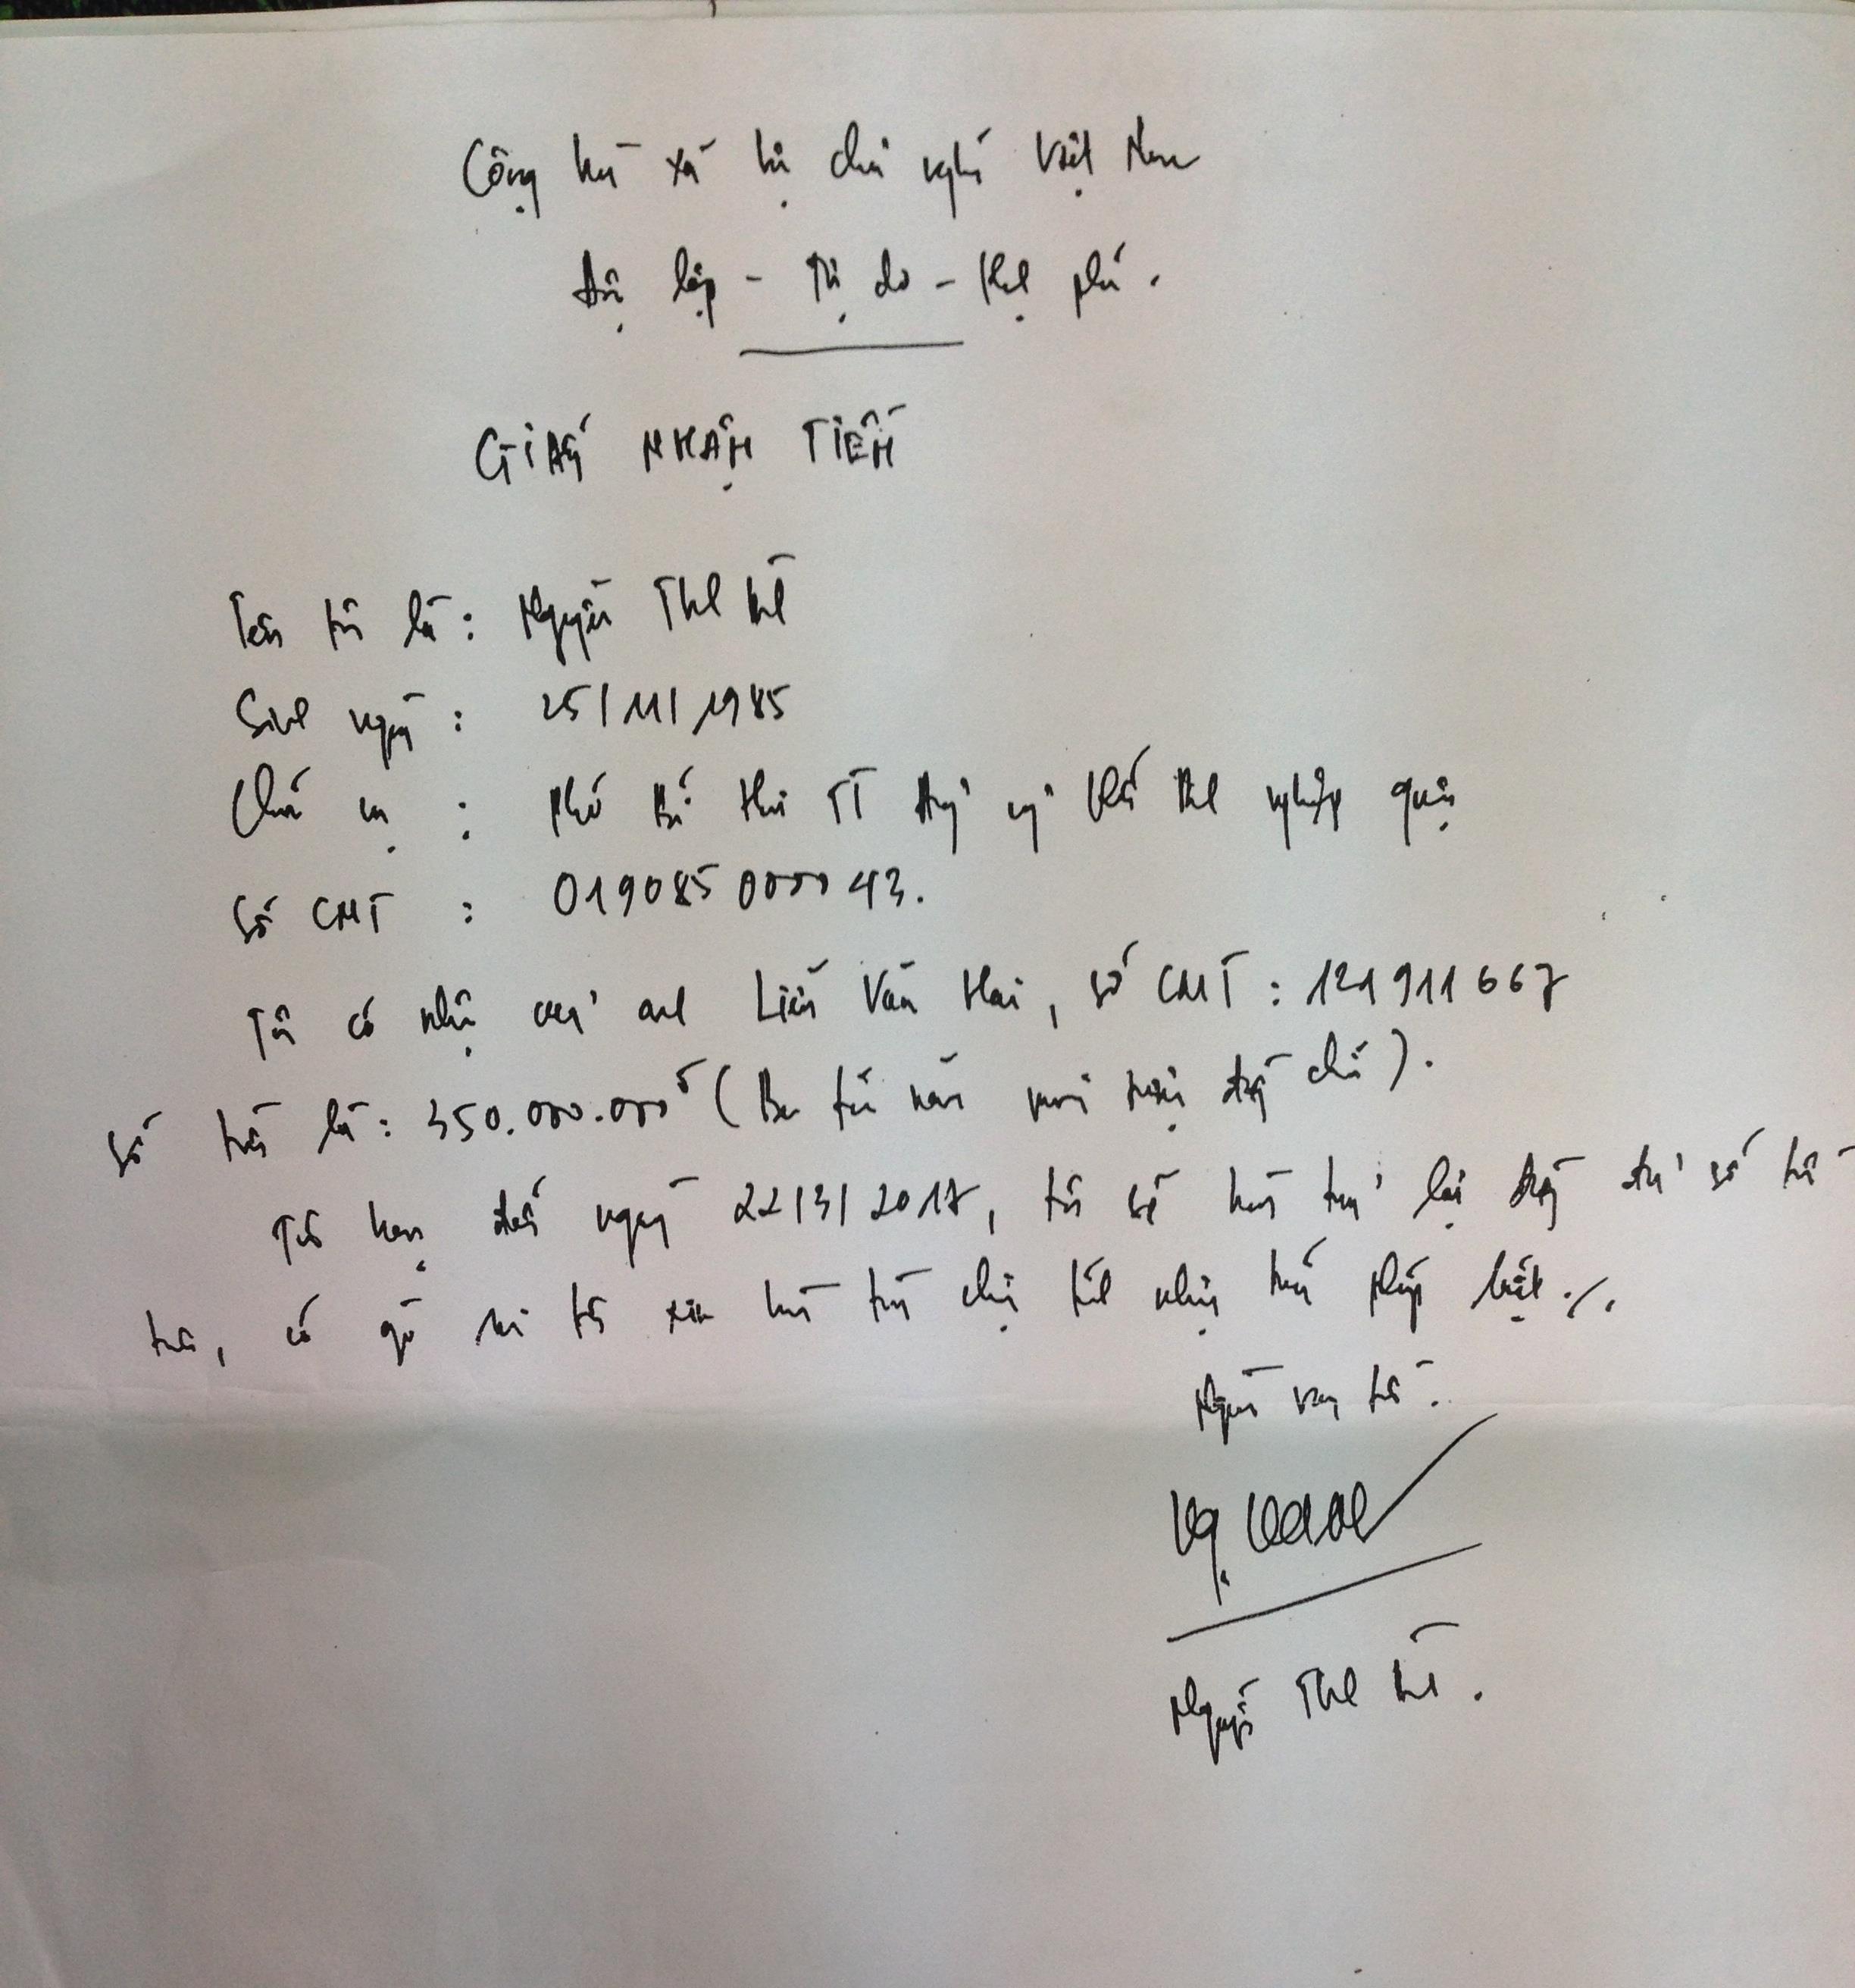 Cộng hòa xã hội chủ nghĩa Việt Nam
Độc lập - Tự do - Hạnh phúc.
GIẤY NHẬN TIỀN
Tên tôi là: Nguyễn Thế
Sinh ngày: 25/11/1985
Chức vụ: Phó Bí thư TT Đảng ủy Khối nghiệp quận
Số CMT: 019085000043.
Tôi có nhận của anh Liễu Văn Hai, số CMT: 121911667
Số tiền là: 350.000.000đ (Ba trăm năm mươi triệu đồng chẵn).
Tôi hẹn đến ngày 22/3/2017, tôi sẽ hoàn trả lại đầy đủ số tiền
trên, có gì sai tôi xin hoàn toàn chịu trách nhiệm trước pháp luật./.
Người vay tiền.
Nguyễn